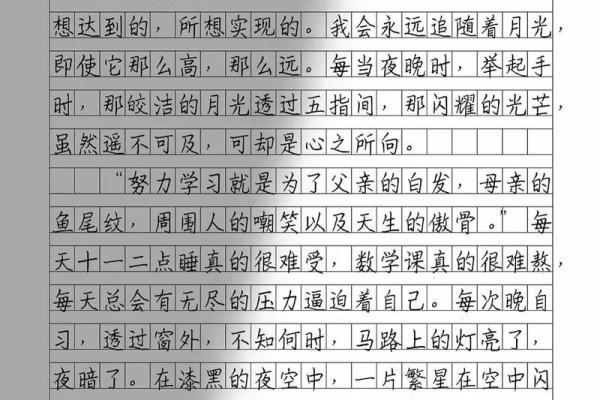 想达到的，所想实现的。我会永远追随着月光，
即使它那么高，那么远。每当夜晚时，举起手
时，那皎洁的月光透过五指间，那闪耀的光芒，
虽然遥不可及，可却是心之所向。
“努力学习就是为了父亲的白发，母亲的
鱼尾纹，周围人的嘲笑以及天生的傲骨。”每
天十一二点睡真的很难受，数学课真的很难熬，
每天总会有无尽的压力逼迫着自己。每次晚自
习，透过窗外，不知何时，马路上的灯亮了，
夜暗了。在漆黑的夜空中，一片繁星在空中闪